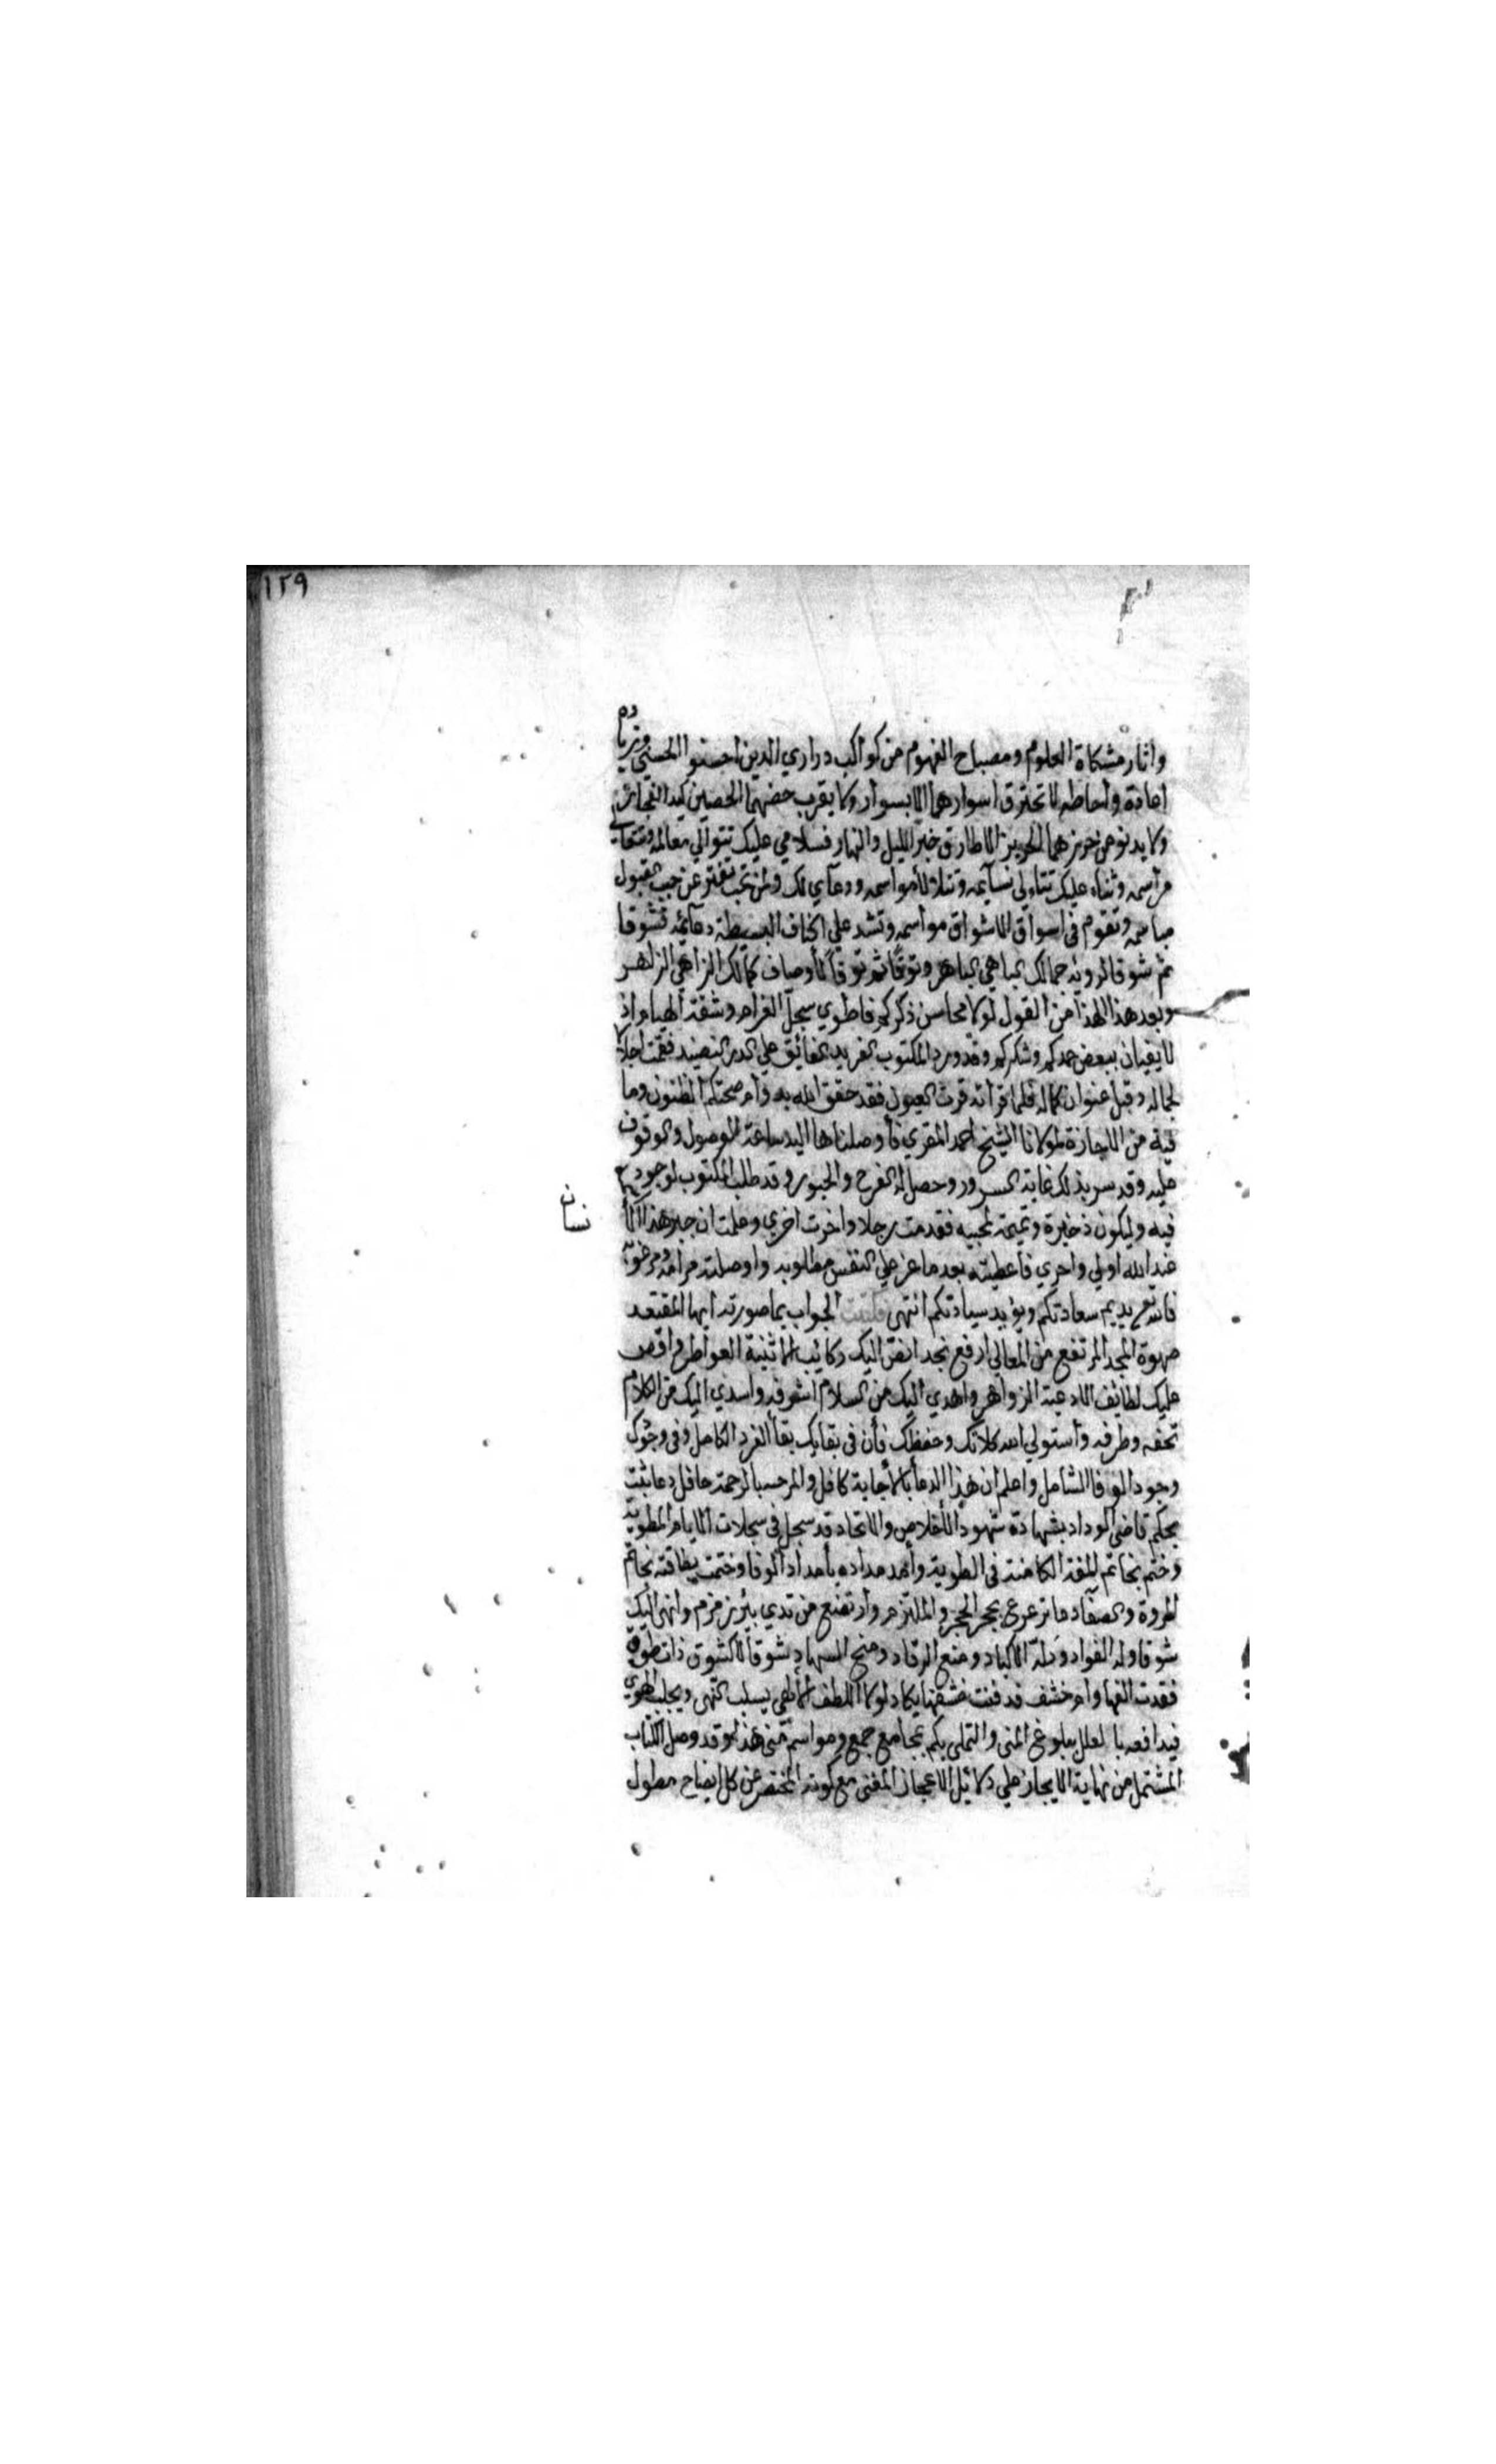 ١٢٩
وانار مشكاة العلوم ومصباح الفهوم من كواكب دراري الذين احسنوا الحسنى وزيادة
اعادة وأحاطه لا تخترق اسوارهما الابسوار ولا يقرب حضنهما الحصين كيد الفجار
ولا يدنو من حرزهما الحريز الاطارق خير الليل والنهار فسلامي عليك تتوالي معالمه وتتعالى
مراسمه وثناء عليك تتاءلى نسائمه وتتلالأ مواسمه ودعآي لك ولمن تحب تفتر عن حبيب القبول
مباسمه وتقوم فى اسواق الاشواق مواسمه وتشد علي اكناف البسيطة دعائمه فشوقا
ثم شوقا لرويه جمالك الباهي الباهر وتوقا ثم توقا لأوصاف كمالك الزاهي الزاهر
وبعد هذا لهذا من القول لولا محاسن ذكركم فاطوي سجل الغرام وشقة الهيام اذ
لا يفيان ببعض حمدكم وشكركم وقد ورد المكتوب الفريد الفائق علي الدر النضيد فقمت اجلالا
لجماله وقبل عنوان كماله فلما قرأته قرت العيون فقد حقق الله به وأم صحتكم الظنون وما
فيه من الاجازة لمولانا الشيخ احمد المقري فأوصلناها اليه ساعة الوصول والوقوف
عليه وقد سر بذلك غاية السرور وحصل له الفرح والحبور وقد طلب المكتوب لوجود
فيه وليكون ذخيرة وتميمة لمحبيه فقدمت رجلا واخرت اخري وعلمت ان جبر هذا الأنسان
عند الله اولي واحري فأعطيته بعد ما عز علي النفس مطلوبه واوصلته مرامه ومرغوبه
فالله تع يديم سعادتكم ويؤيد سيادتكم انتهى فكتبت الجواب بما صورته ايها المقتعد
صهوة المجد المرتفع من المعالى ارفع نجد انض اليك ركائب الاثنية العواطر واقص
عليك لطائف الادعية الزواهر واهدي اليك من السلام اشرفه واسدي اليك من الكلام
تحفه وطرفه وأستولي الله كلاتك وحفظك فأن فى بقايك بقأ الفرد الكامل وفى وجودك
وجود الوفا الشامل واعلم ان هذا الدعأ بالأجابة كافل والمرحبا بالرحمة حافل دعا ثبت
بحكم قاضي الوداد بشهادة شهود الأخلاص والاتحاد قد سجل فى سجلات الايام المطوية
وختم بخاتم المقة الكامنة فى الطوية وأمد مداده بأمداد الوفا وختمت بطاقته بخاتم
المروة والصفآء دعا ترعرع بحجر الحجر والملتزم وارتضع من ثدي بئر زمزم وانهى اليك
شوقا وله الفواد ودله الاكباد ومنع الرقاد ومنح السهاد شوقا لا كشوق ذات طوق
فقدت الفها وام خشف قد فنت خشفها يكاد لولا اللطف الألهي يسلب النهى ويجلب الهوي
فيدافعه بالعلل ببلوغ المنى والتملى بكم بمجامع جمع ومواسم منى هذا وقد وصل الكتاب
المشتمل من نهاية الايجاز علي دلائل الاعجاز المغنى مع كونه المختصر عن كل ايضاح مطول